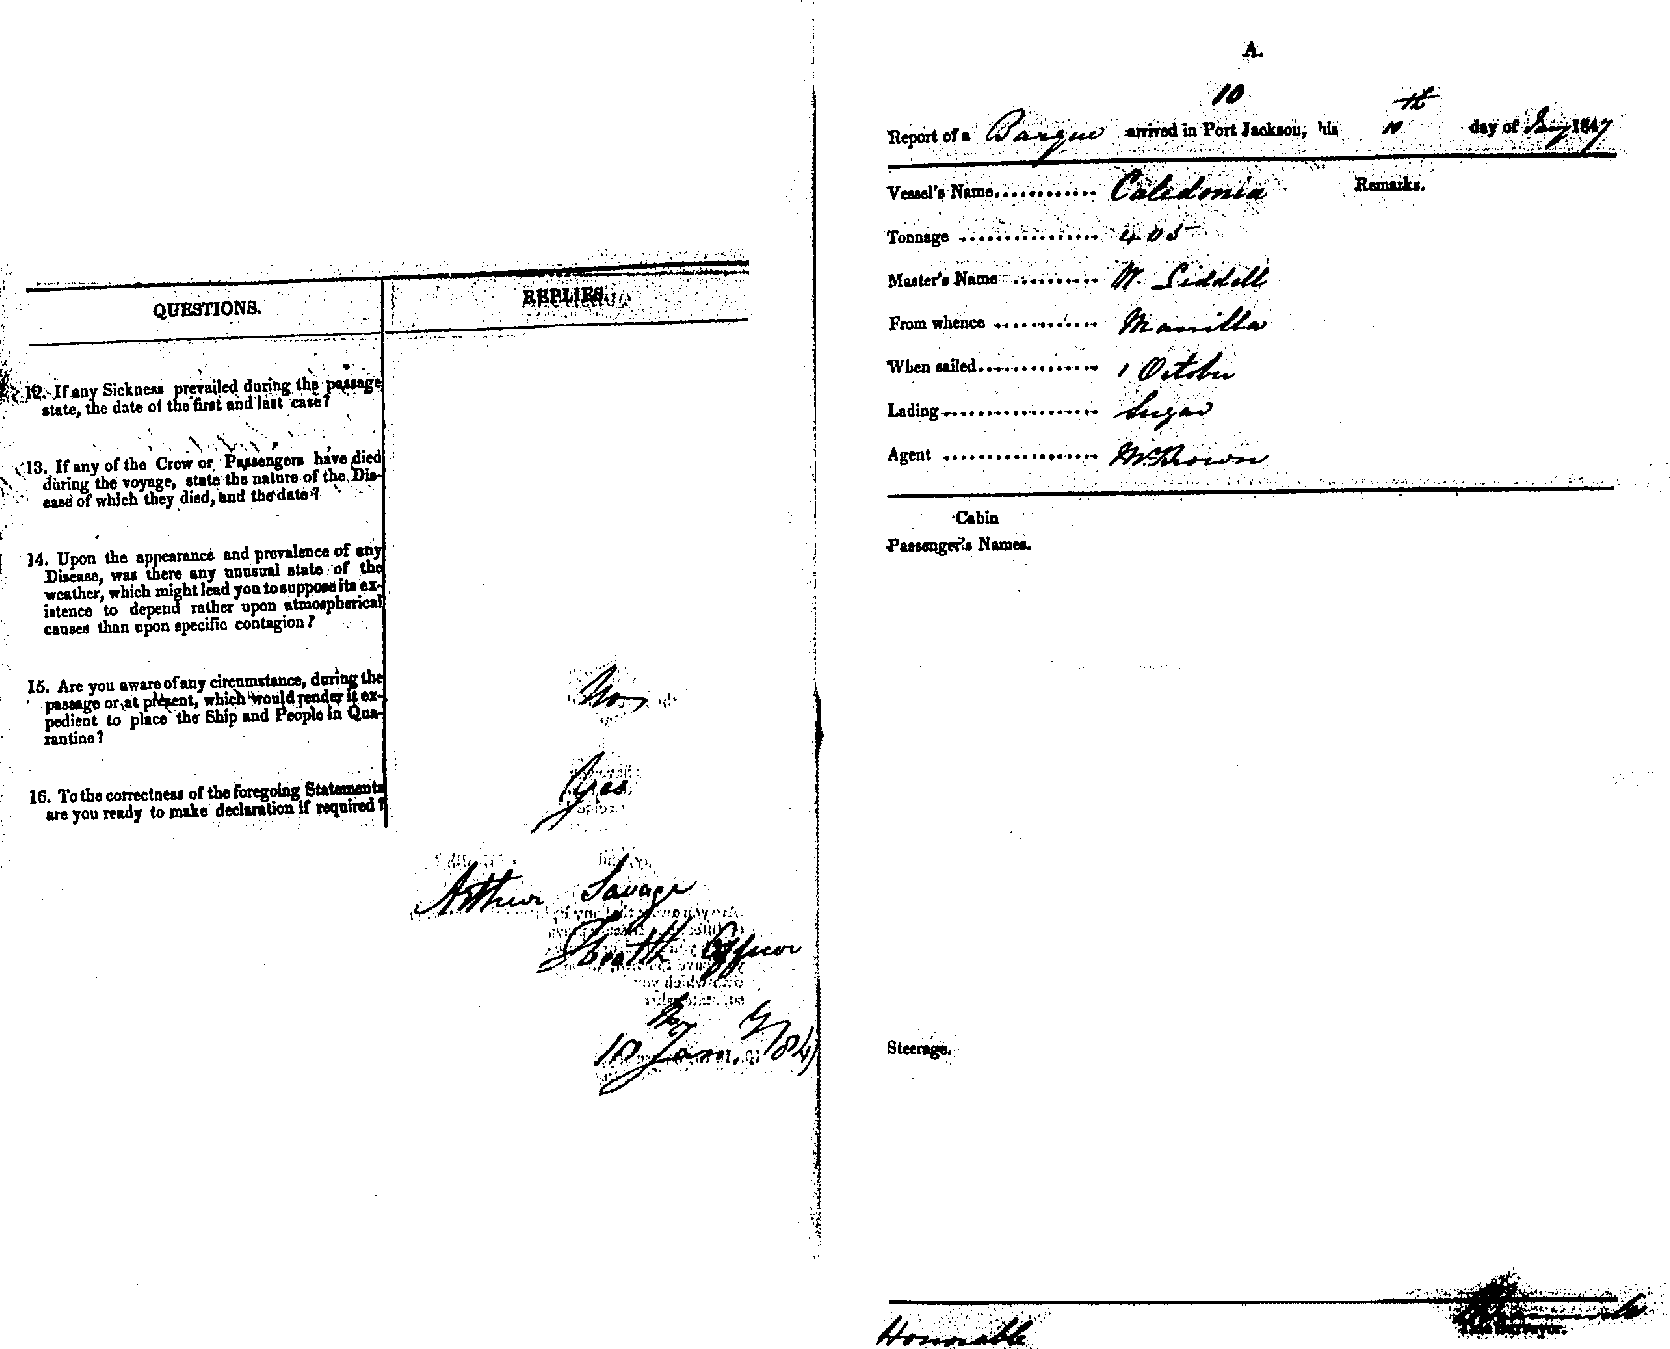 QUESTIONS.
REPLIES.
12. If any Sickness prevailed during the passage
state, the date of the first and last case?
13. If any of the Crew or Passengers have died
during the voyage, state the nature of the Dis-
ease of which they died, and the date?
14. Upon the appearance and prevalence of any
Disease, was there any unusual state of the
weather, which might lead you to suppose its ex-
istence to depend rather upon atmospherical
causes than upon specific contagion?
15. Are you aware of any circumstance, during the
passage or at present, which would render it ex-
pedient to place the Ship and People in Qua-
rantine?
No
16. To the correctness of the foregoing Statements
are you ready to make declaration if required?
Yes
Arthur Savage
Health Officer
10 Jany. 184
A.
10
Report of a Barque arrived in Port Jackson, this 10th day of Jany 1847
Vessel's Name............ Caledonia
Remarks.
Tonnage ................ 405
Master's Name .......... W. Liddell
From whence ............ Manilla
When sailed.............. 1 October
Lading.................. Sugar
Agent .................. Brown
Cabin
Passenger's Names.
Steerage.
Honorable
Surveyor.